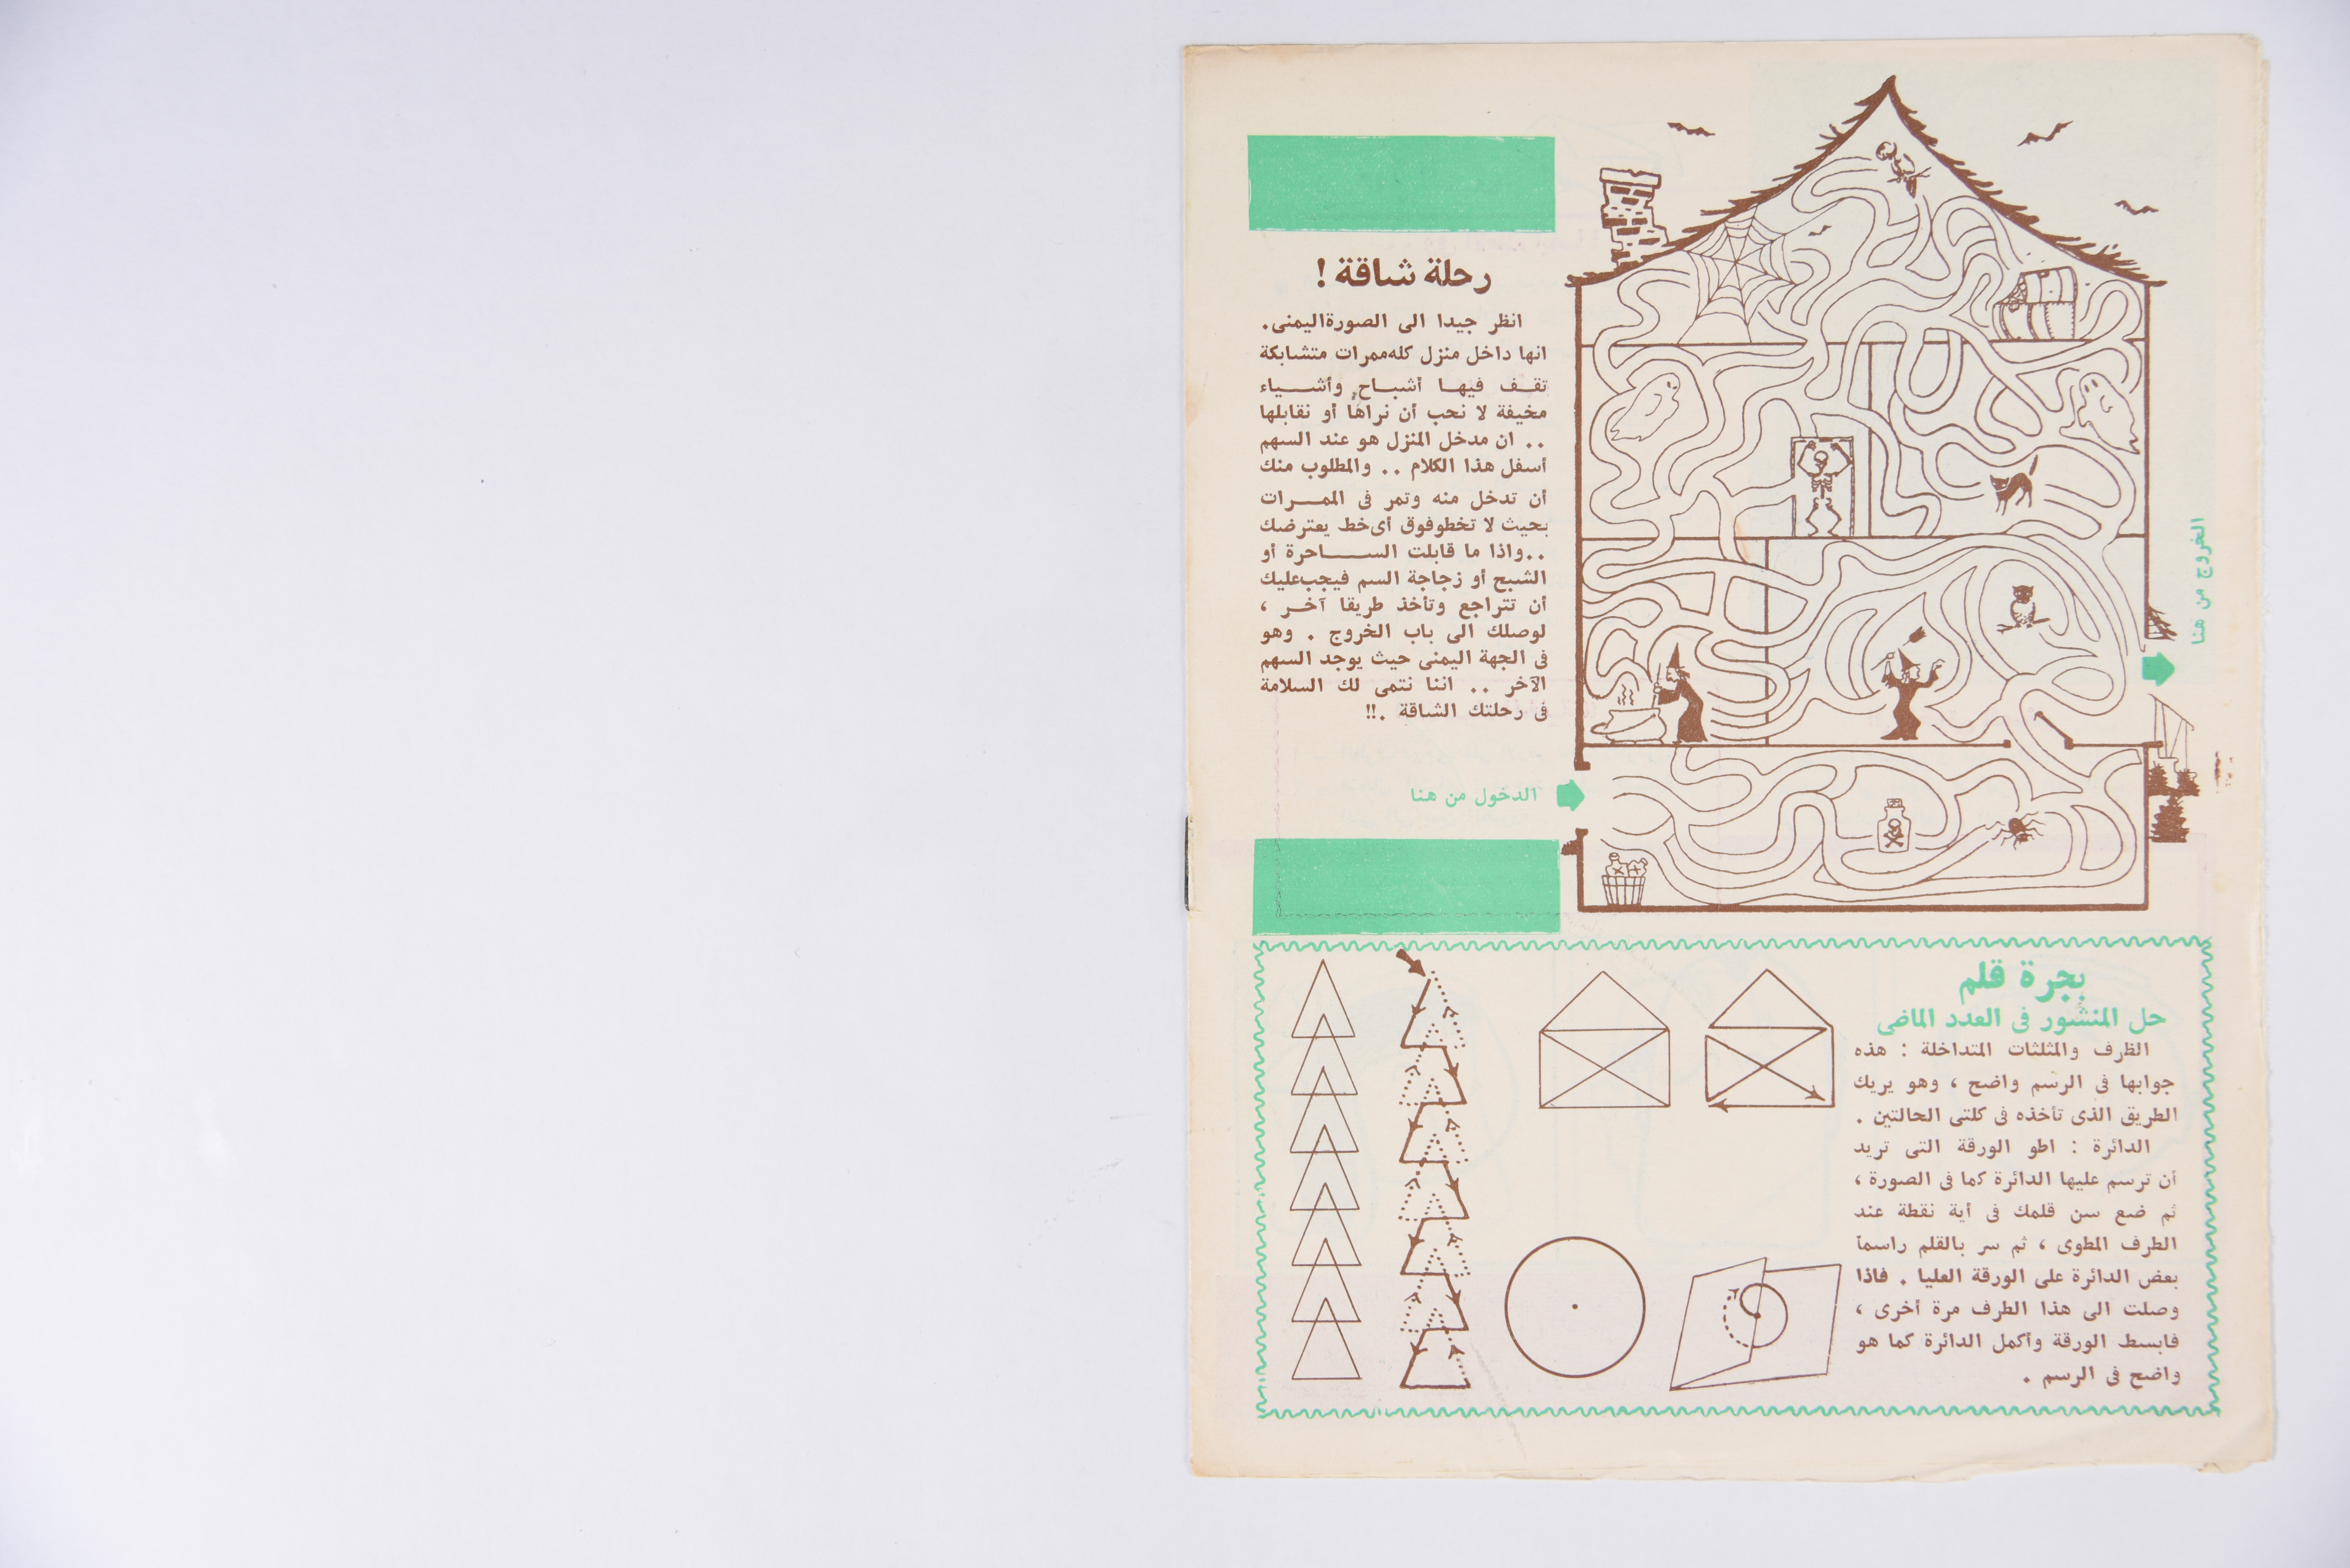 رحلة شاقة !
انظر جيدا الى الصورة اليمنى.
انها داخل منزل كله ممرات متشابكة
تقـــف فيهــا أشــباح وأشـــياء
مخيفة لا نحب أن نراها أو نقابلها
.. ان مدخل المنزل هو عند السهم
أسفل هذا الكلام .. والمطلوب منك
أن تدخل منه وتمر فى الممـــرات
بحيث لا تخطو فوق أى خط يعترضك
..واذا ما قابلت الســـــاحرة أو
الشبح أو زجاجة السم فيجب عليك
أن تتراجع وتأخذ طريقا آخــر ،
لوصلك الى باب الخروج . وهو
فى الجهة اليمنى حيث يوجد السهم
الآخر .. اننا نتمى لك السلامة
فى رحلتك الشاقة .!!
الدخول من هنا
الخروج من هنا
بجرة قلم
حل المنشور فى العدد الماضى
الظرف والمثلثات المتداخلة : هذه
جوابها فى الرسم واضح ، وهو يريك
الطريق الذى تأخذه فى كلتى الحالتين .
الدائرة : اطو الورقة التى تريد
أن ترسم عليها الدائرة كما فى الصورة ،
ثم ضع سن قلمك فى أية نقطة عند
الطرف المطوى ، ثم سر بالقلم راسماً
بعض الدائرة على الورقة العليا . فاذا
وصلت الى هذا الطرف مرة أخرى ،
فابسط الورقة وأكمل الدائرة كما هو
واضح فى الرسم .